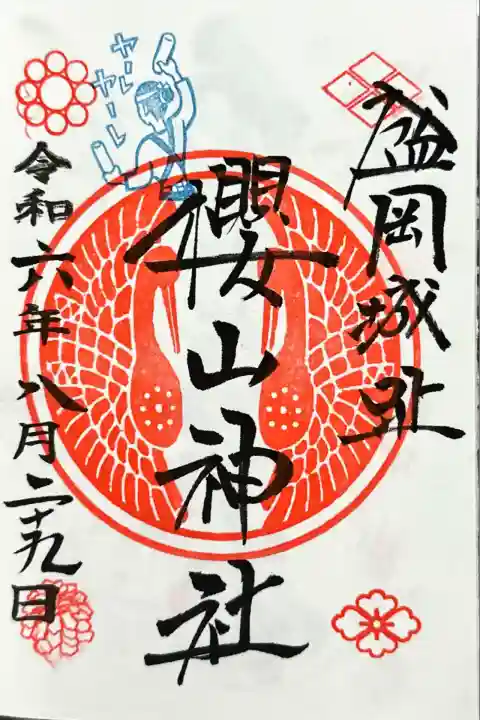 盛岡城址
櫻山神社
ヤーレ
ヤーレ
令和六年八月二十九日